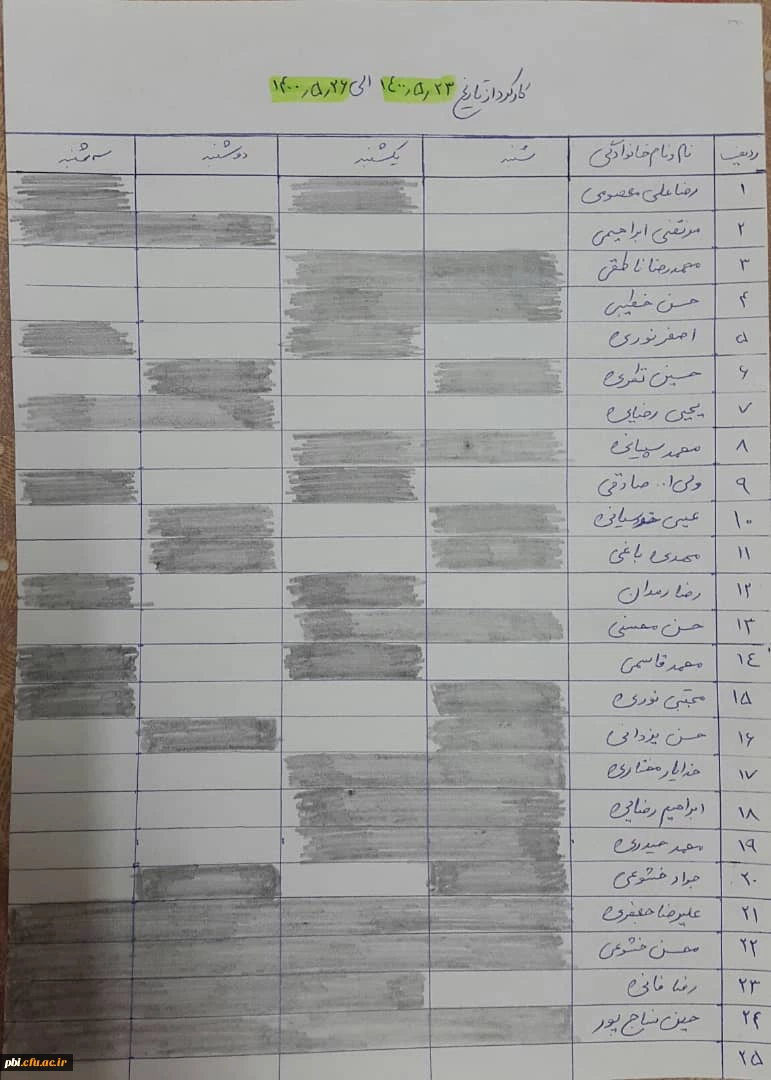 کارکرد از تاریخ ۱۴۰۰٫۵٫۲۳ الی ۱۴۰۰٫۵٫۲۶
ردیف نام و نام خانوادگی شنبه یکشنبه دوشنبه سه شنبه
۱ رضاعلی معصومی
۲ مرتضی ابراهیمی
۳ محمدرضا ناطقی
۴ حسن خطیبی
۵ اصغر نوری
۶ حسین نظری
۷ یحیی رضایی
۸ محمد سپیانی
۹ ولی ا... صادقی
۱۰ عیسی
۱۱ مهدی باغی
۱۲ رضا
۱۳ حسن محسنی
۱۴ محمد قاسمی
۱۵ مجتبی نوری
۱۶ حسن یزدانی
۱۷ خدایار مختاری
۱۸ ابراهیم رضایی
۱۹ محمد حیدری
۲۰ جواد خشوعی
۲۱ علیرضا جعفری
۲۲ محسن خشوعی
۲۳ رضا فانی
۲۴ حسین نساج پور
۲۵
pbi.cfu.ac.ir